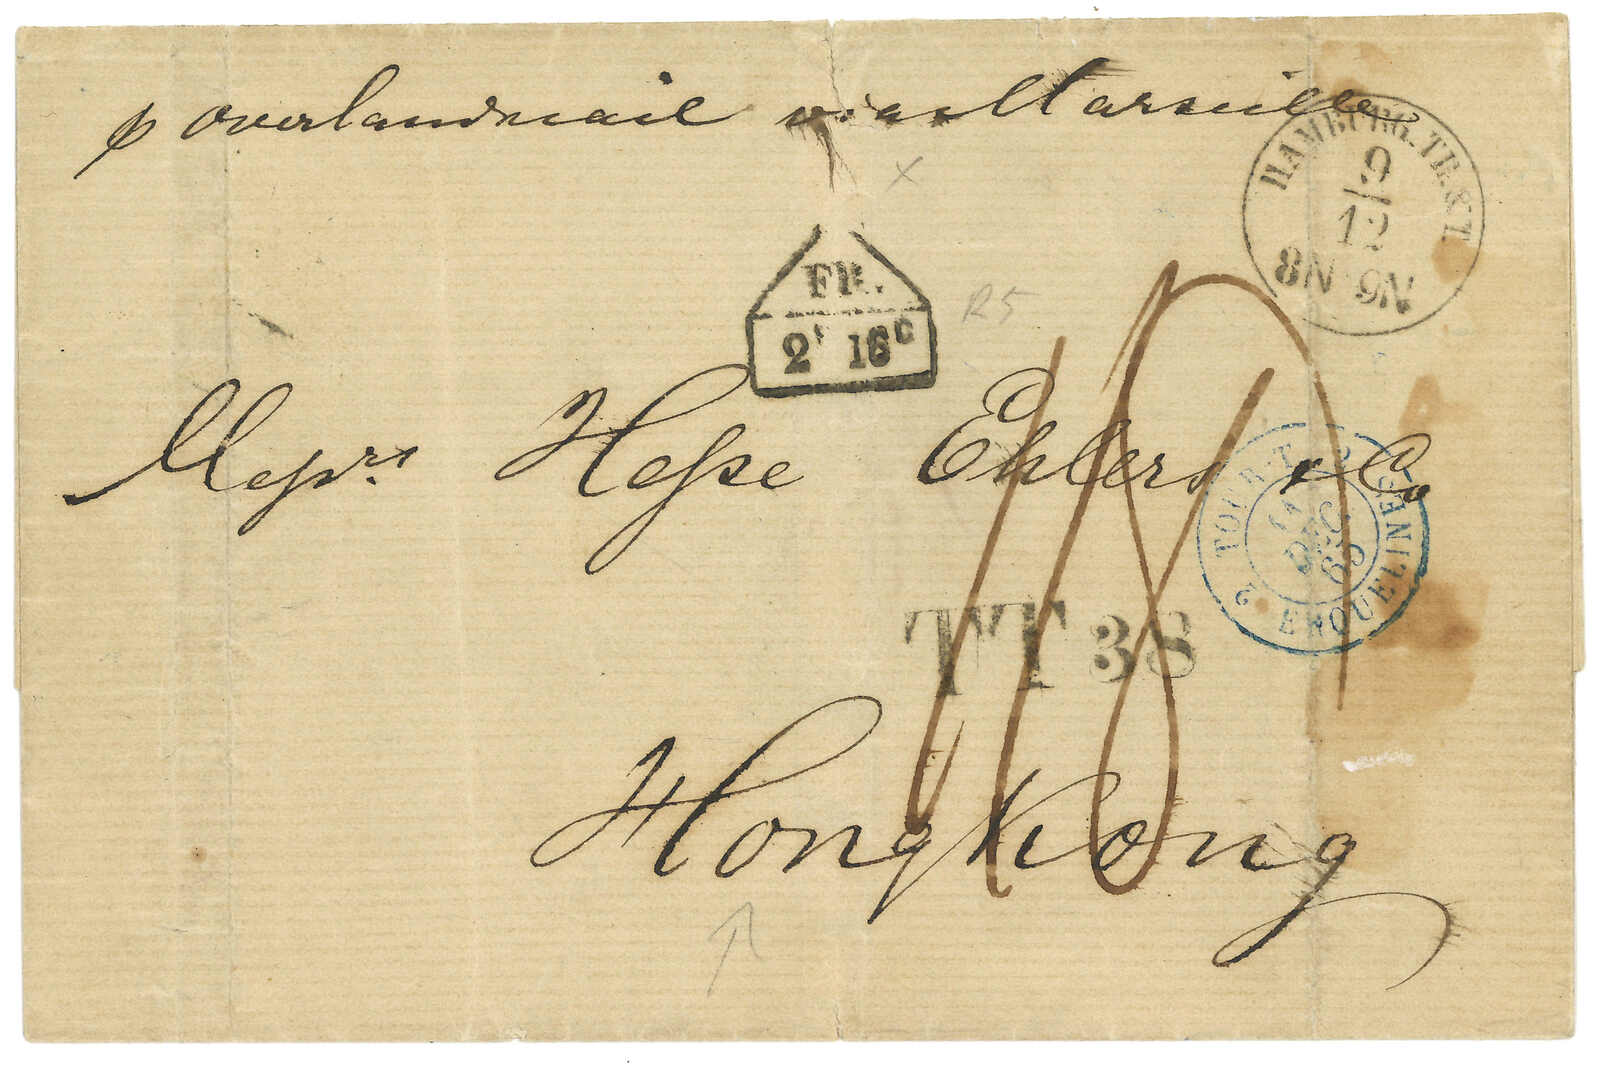 p overlandmail via Marseille
HAMBURG. TH. & T.
9
12
8N-9N
x
FR.
2f 16c
R5
Messrs Hesse Ehlers & Co.
TOUR-T
DEC.
69
2 ERQUELINES 2
TT 38
118
Hongkong